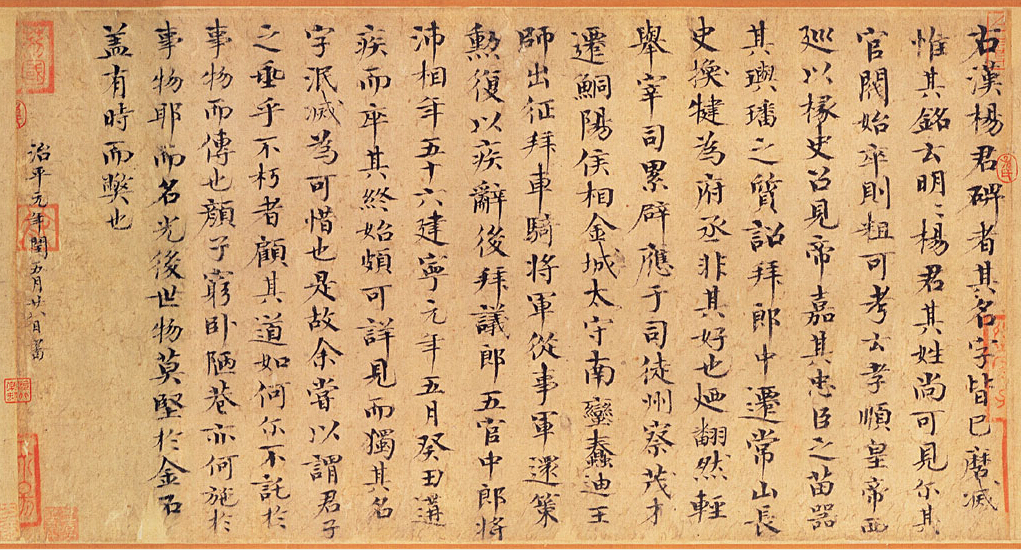 右漢楊君碑者其名字皆已磨滅
惟其銘云明〻楊君其姓尚可見尔其
官閥始卒則粗可考云孝順皇帝西
巡以掾史召見帝嘉其忠臣之苗器
其璵璠之質詔拜郎中遷常山長
史換犍為府丞非其好也迺翻然輕
舉宰司累辟應于司徒州察茂才
遷鮦陽侯相金城太守南蠻蠢迪王
師出征拜車騎將軍從事軍還策
勲復以疾辭後拜議郎五官中郎將
沛相年五十六建寧元年五月癸丑遘
疾而卒其終始頗可詳見而獨其名
字泯滅為可惜也是故余嘗以謂君子
之垂乎不朽者顧其道如何尔不託於
事物而傳也顏子窮卧陋巷亦何施於
事物耶而名光後世物莫堅於金石
盖有時而弊也
治平元年閏五月廿八日書